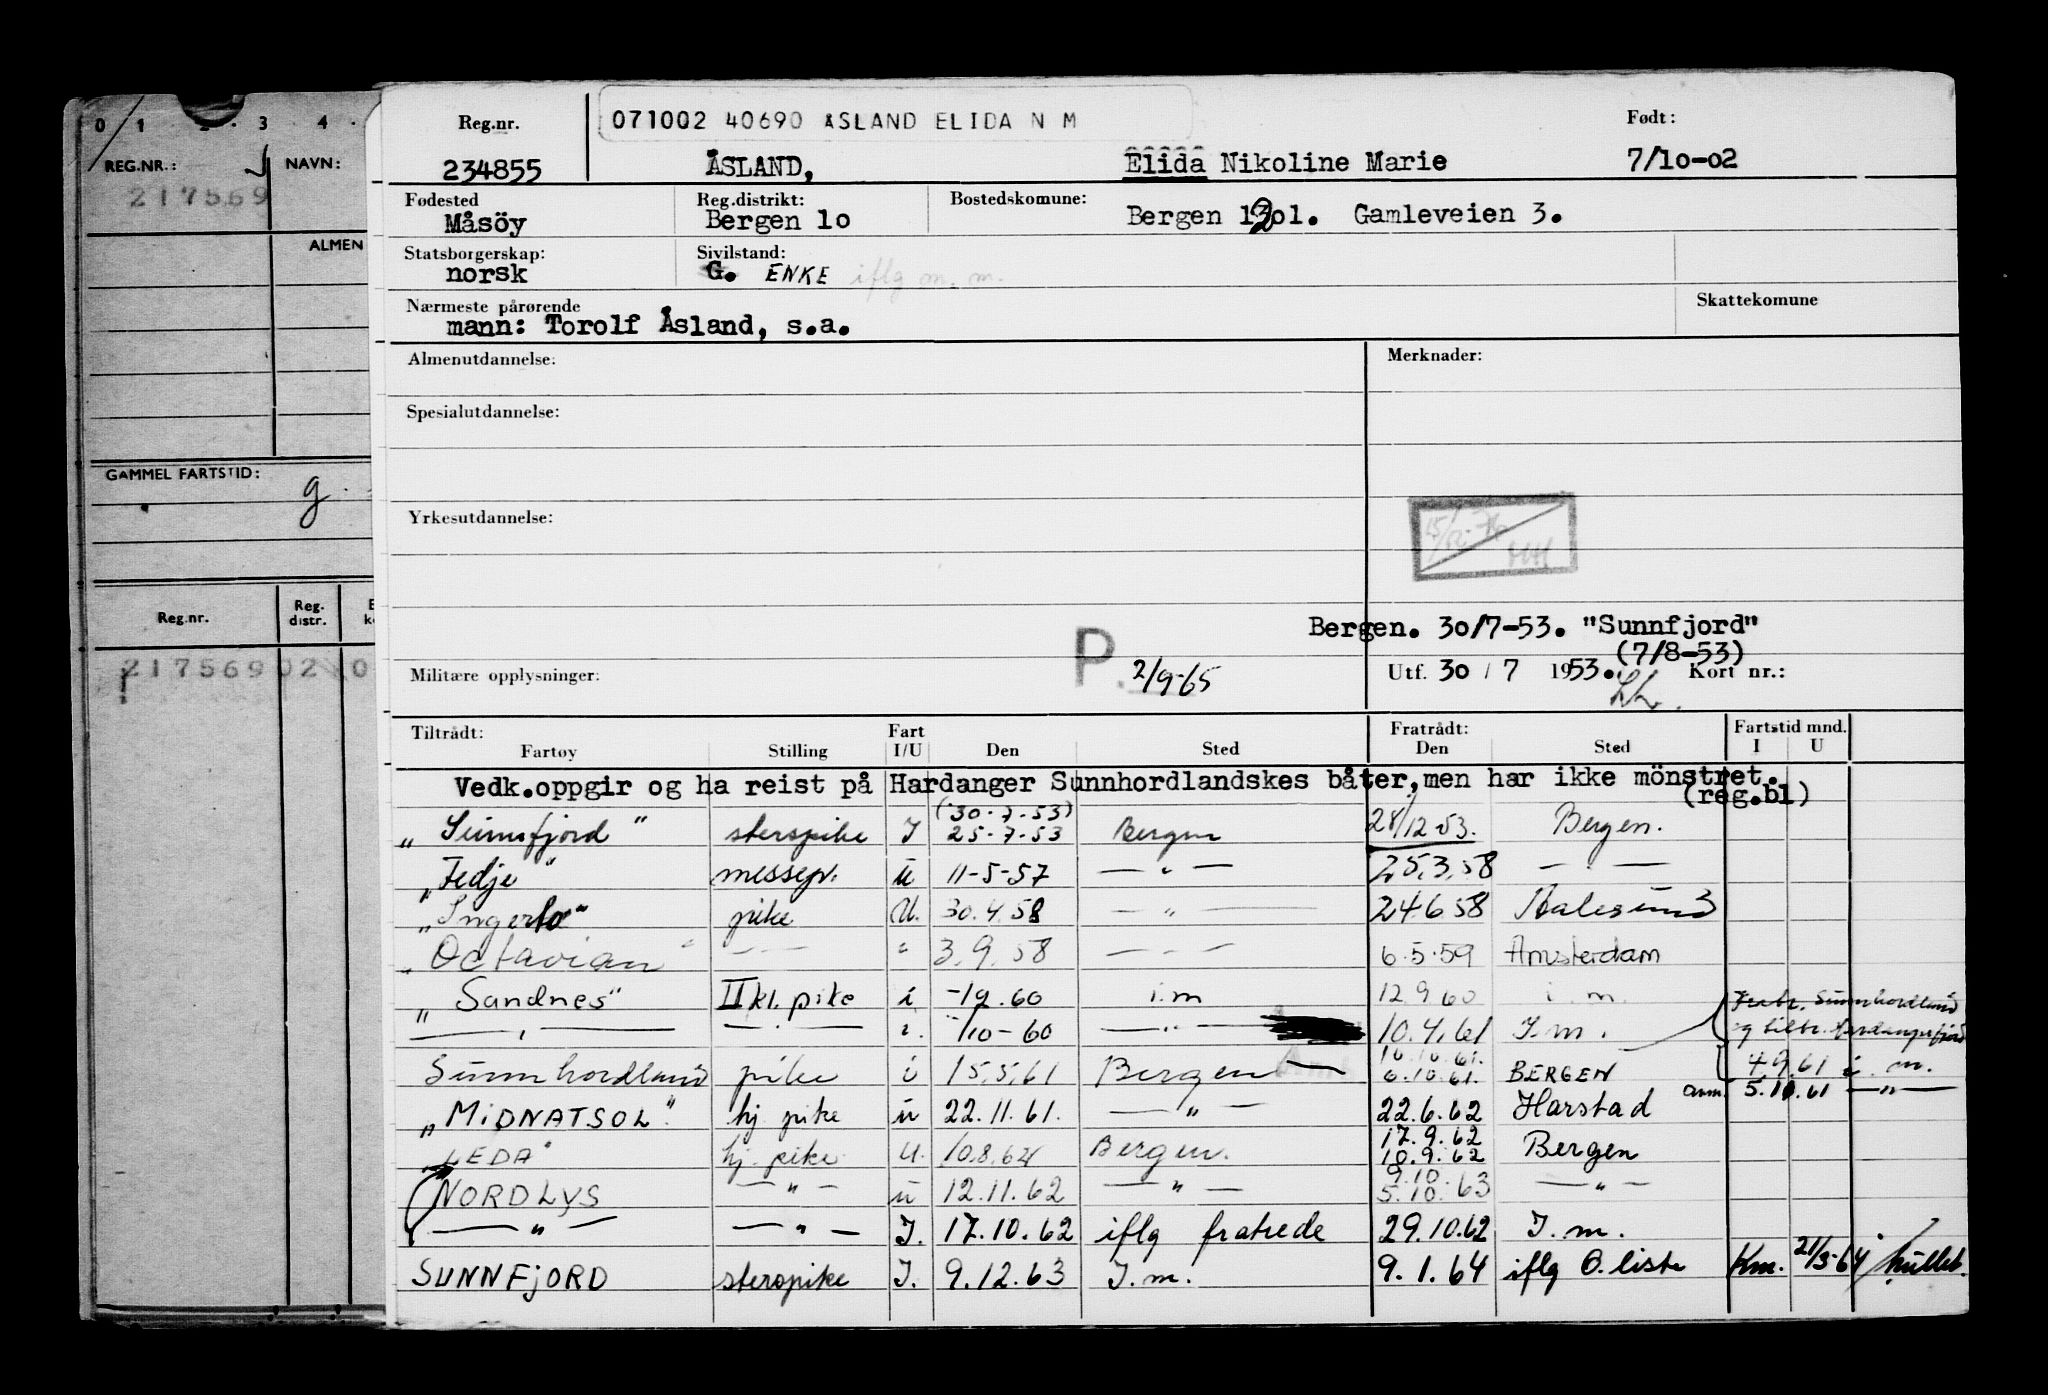 0 1 2 · 3 4 ·
REG.NR.: NAVN:
217569
ALMEN
GAMMEL FARTSTID:
g.
Reg.nr. Reg. distr.
217569 02 0
Reg.nr. 071002 40690 ÅSLAND ELIDA N M Født:
234855 ÅSLAND, Elida Nikoline Marie 7/10-02
Fødested Reg.distrikt: Bostedskomune:
Måsöy Bergen 10 Bergen 1301. Gamleveien 3.
Statsborgerskap: Sivilstand:
norsk G. ENKE iflg m. m.
Nærmeste pårørende Skattekomune
mann: Torolf Åsland, s.a.
Almenutdannelse: Merknader:
Spesialutdannelse:
Yrkesutdannelse:
Bergen. 30/7-53. "Sunnfjord"
(7/8-53)
Militære opplysninger: P. 2/9-65 Utf. 30 / 7 1953. Kort nr.:
Tiltrådt: Fart Fratrådt: Fartstid mnd.
Fartøy Stilling I/U Den Sted Den Sted I U
Vedk.oppgir og ha reist på Hardanger Sunnhordlandskes båter,men har ikke mönstret.
(reg.bl)
(30-7-53)
"Sunnfjord" sterspike I 25-7-53 Bergen 28/12-53. Bergen.
"Fedje" messep. u 11-5-57 — " — 25.3.58 — " —
"Ingerto" pike U. 30.4.58 — " — 24658 Aalesund
"Octavian" — — " 3.9.58 — - — 6.5.59 Amsterdam
"Sandnes" II kl. pike i -19.60 i.m 12.9.60 i.m. Fratr. Sunnhordland
— " — — " — i. 1/10-60 — " — 10.4.61 I.m. og tiltr. Hardangerfjord
10.10.61. 4.9.61 i. m.
Sunnhordland pike i 15.5.61 Bergen 6.10.61. BERGEN
avm. 5.10.61 — " —
"MIDNATSOL." hj pike u 22.11.61. — " — 22.6.62 Harstad
17.9.62
"LEDA" hj. pike U. 10.8.62 Bergen. 10.9.62 Bergen
9.10.
NORDLYS — " — u 12.11.62 — " — 5.10.63 — " —
— " — — " — I. 17.10.62 iflg fratrede 29.10.62 I.m.
SUNNFJORD sterspike I. 9.12.63 I.m. 9.1.64 iflg O.liste Km. 21/3-64 hullet.